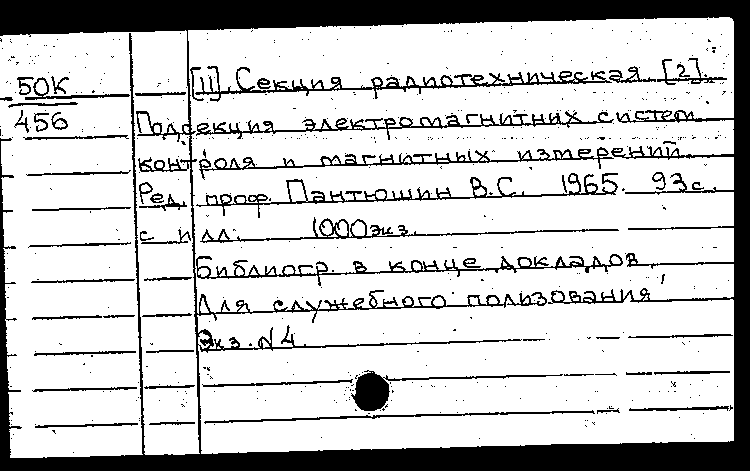 50К [11]. Секция радиотехническая. [2].
456 Подсекция электромагнитних систем
контроля и магнитных измерений.
Ред. проф. Пантюшин В.С. 1965. 93с.
с илл. 1000экз.
Библиогр. в конце докладов.
Для служебного пользования
Экз. №4.